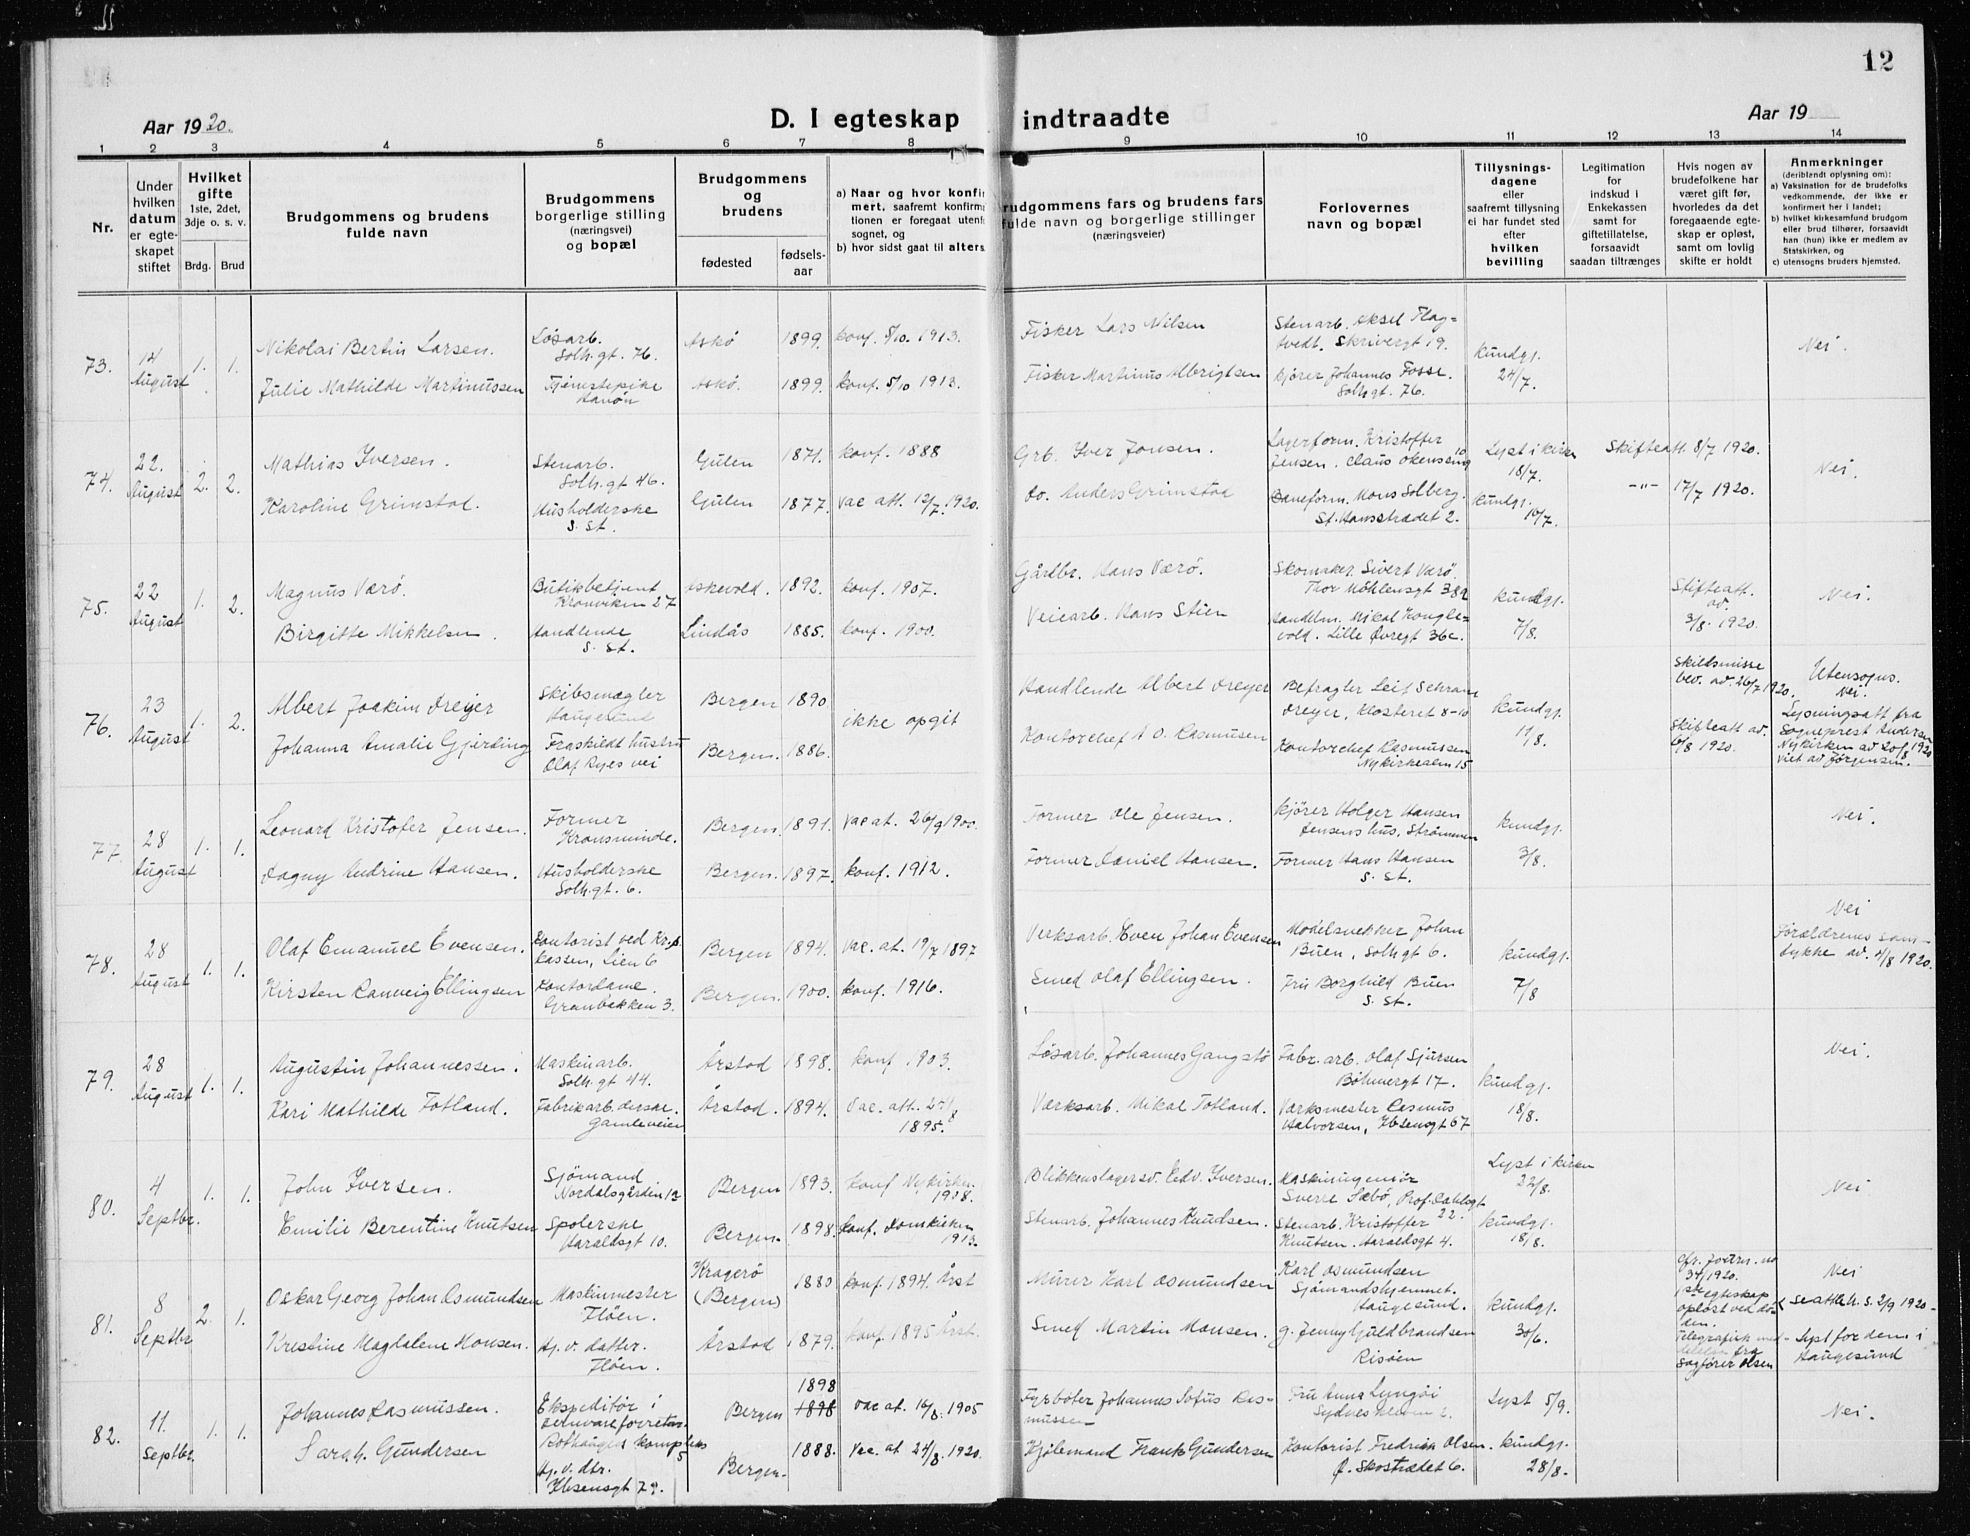 12
Aar 1920.
D. I egteskap indtraadte
Aar 19
1 2 3 4 5 6 7 8 9 10 11 12 13 14
Nr.
Under hvilken datum er egteskapet stiftet
Hvilket gifte
1ste, 2det, 3dje o. s. v.
Brdg. Brud
Brudgommens og brudens fulde navn
Brudgommens borgerlige stilling (næringsvei) og bopæl
Brudgommens og brudens
fødested
fødsels-aar
a) Naar og hvor konfir
mert, saafremt konfirma
tionen er foregaat utenf
sognet, og
b) hvor sidst gaat til alters
rudgommens fars og brudens fars
fulde navn og borgerlige stillinger
(næringsveier)
Forlovernes navn og bopæl
Tillysnings-dagene eller saafremt tillysning ei har fundet sted efter hvilken bevilling
Legitimation for indskud i Enkekassen samt for giftetillatelse, forsaavidt saadan tiltrænges
Hvis nogen av brudefolkene har været gift før, hvorledes da det foregaaende egteskap er opløst, samt om lovlig skifte er holdt
Anmerkninger
(deriblandt oplysning om):
a) Vaksination for de brudefolks vedkommende, der ikke er konfirmert her i landet;
b) hvilket kirkesamfund brudgom eller brud tilhører, forsaavidt han (hun) ikke er medlem av Statskirken, og
c) utensogns bruders hjemsted.
73. 14 August 1. 1.
Nikolai Bertin Larsen. Løsarb. Solh.gt. 76. Askö 1899. konf. 5/10. 1913. Fisker Lars Nilsen Stenarb. Aksel Flagtvedt. Skrivergt 19. kundgj. 24/7. Nei.
Julie Mathilde Martinussen Tjenestepike Askö. 1899. konf. 5/10 1913. Fisker Martinus Albrigtsen Kjører Johannes Fosse. Solh.gt. 76.
74. 22. August 2. 2.
Mathias Iversen. Stenarb. Solh.gt 46. Gulen 1871. konf. 1888 Grb. Iver Jonsen. Lagerform. Kristoffer Jensen. Lyst i kirken 18/7. Skifteatt. 8/7 1920. Nei.
Karoline Grimstad. Husholderske s. st. Gulen 1877. Vac att. 12/7. 1920. do. Anders Grimstad Baneform. Mons Solberg. St. Hansstrædet 2. kundgj. 16/7. -"- 17/7 1920.
75. 22 August 1. 2.
Magnus Værö. Butikbetjent Kronviken 27 Askevold. 1892. konf. 1907. Gårdbr. Hans Værö. Skomaker Sivert Værö. Thor Möhlensgt 38a kundgj. 7/8. Skifteatt. av 3/8. 1920. Nei.
Birgitte Mikkelsen. Handlende s. st. Lindås 1885. konf. 1900. Veiearb. Hans Stien Handlm. Mikal Konglevold. Lille Øvregt 36c.
76. 23 August 1. 2.
Albert Joakim Dreyer Skibsmægler Haugesund Bergen 1890. ikke opgit Handlende Albert Dreyer Befragter Leif Schram Dreyer, Klosteret 8-10 kundgj. 11/8. Skilsmisse bev. av. 26/7 1920. Utensogns. Nei.
Johanna Amalie Gjerding Fraskildt hustru Olaf Ryes vei Bergen. 1886. Kontorchef A O. Rasmusen Kontorchef Rasmussen Nykirkealm 15 Skifteatt av. 6/8 1920. Lysningsatt fra Sogneprest Andersen Nykirken av 20/8 1920 viet av Jørgensen.
77. 28 August 1. 1.
Leonard Kristofer Jensen. Former Kronsminde. Bergen. 1891. Vac at. 26/9 1900. Former Ole Jensen. Kjører Holger Hansen Jensens hus, Strömmen kundgj. 3/8. Nei.
Dagny Andrine Hansen. Husholderske Solh.gt. 6. Bergen. 1897. konf. 1912. Former Daniel Hansen. Former Hans Hansen s. st.
78. 28 August 1. 1.
Olaf Emanuel Evensen. Kontorist ved Kr.s kassen, Lien 6 Bergen 1894. Vac. at. 19/7 1897 Verksarb. Even Johan Evensen Modelsnekker Johan Buen, Solh.gt 6. kundgj. 7/8 Nei Forældrenes samtykke av. 4/8 1920.
Kirsten Ranveig Ellingsen Kontordame. Granbakken 3. Bergen. 1900. konf. 1916. Smed Olaf Ellingsen. Fru Borghild Buen s. st.
79. 28 August 1. 1.
Augustin Johannessen. Maskinarb. Solh.gt 44. Årstad 1898. konf 1903. Løsarb. Johannes Gangstö Fabr. arb. Olaf Sjursen Böhmergt 17. kundgj. 18/8. Nei.
Kari Mathilde Totland. Fabrikarb. Gamleveien Årstad. 1894. Vac. att. 1895. Værksarb. Mikal Totland. Værksmester Rasmus Halvorsen, Ibsensgt 67
80. 4 Septbr. 1. 1.
John Iversen. Sjömand Nordalsgården 12 Bergen 1893. konf Nykirken. 1908. Blikkenslagersv. Edv. Iversen. Maskiningeniör Sverre Sæbö, Prof. Dahlsgt 22. Lyst i kirken 22/8. Nei
Emilie Berentine Knutsen Spolerske Haraldsgt 10. Bergen. 1898. konf. Domkirken 1913. Stenarb. Johannes Knudsen. Stenarb. Kristoffer Knutsen. Haraldsgt 4. kundgj. 18/8.
81. 8 Septbr 2. 1.
Oskar Georg Johan Osmundsen Maskinmester Flöen. Kragerö (Bergen) 1880 konf. 1894. Årst Murer Karl Osmundsen Karl Osmundsen Sjömandshjemmet. Haugesund. kundgj. 30/6. 1ste egteskap opløst ved döden. Nei
Kristine Magdalene Monsen. Hj. v. datter. Flöen. Årstad 1879. konf 1895 Årst. Smed Martin Monsen. g. Jenny Guldbrandsen Risöen Telegrafisk meddelelse fra Sagfører Olsen Seattle U. S. 2/9 1920 - Lyst for dem i Haugesund
82. 11. Septbr. 1. 1.
Johannes Rasmussen. Ekspeditör i Rothaugen kompleks 5 Bergen 1898 1898 Vac at. 16/8. 1905 Fyrböter Johannes Sofus Rasmussen Fru Anna Lyngöi Lyst 5/9. Nei.
Sara h. Gundersen Hj. v. dtr. Ibsensgt 79. Bergen. 1888. Vac. at 24/8. 1920. Kjølemand Frank Gundersen Kontorist Fredrik Olsen. Skostrædet 6. kundgj. 28/8.